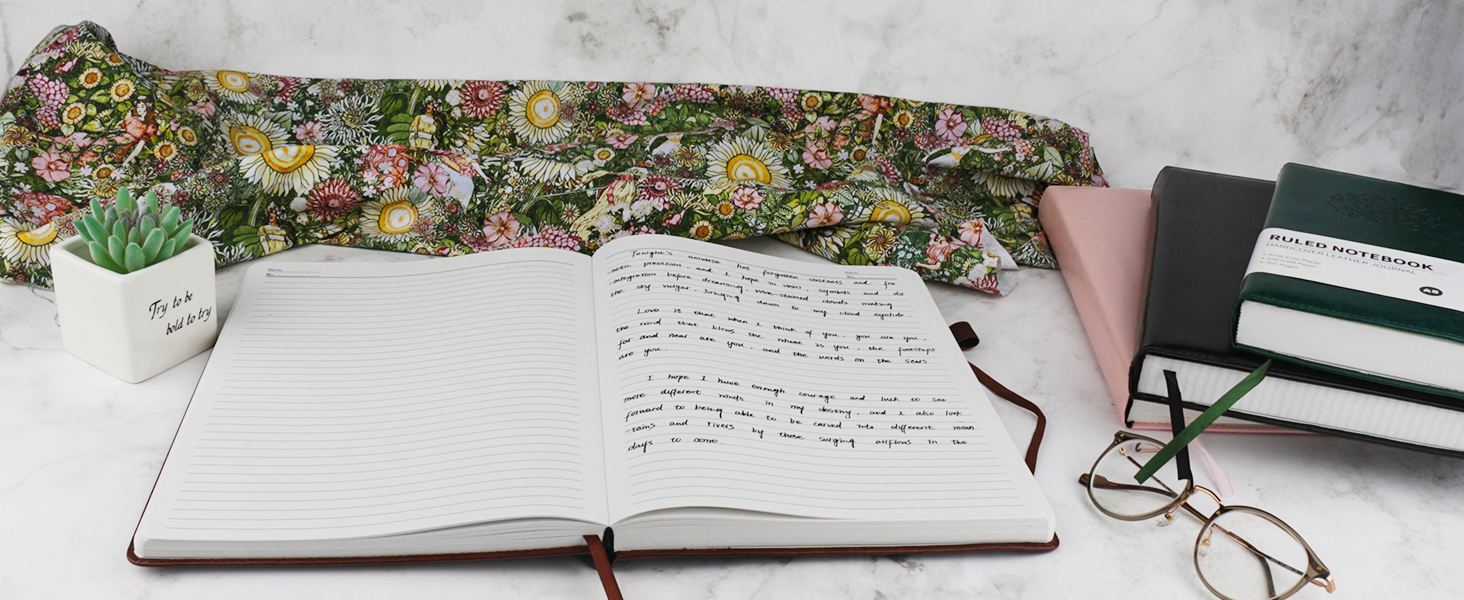 Try to be
bold to try
Date
No.
Date
Tonight's universe has forgotten vastness and fire
-ness precision, and I hope in vain, symbols and di
-ntegration before dreaming wine-stained clouds making
the sky vulgar, bringing dawn to my cloud eyelids.
Love is that when I think of you, you are you,
the wind that blows the wheat is you, the footsteps
far and near are you, and the words on the stars
are you.
I hope I have enough courage and luck to see
more different winds in my destiny, and I also look
forward to being able to be carved into different moun
-tains and rivers by these surging airflows in the
days to come
RULED NOTEBOOK
HARDCOVER LEATHER JOURNAL